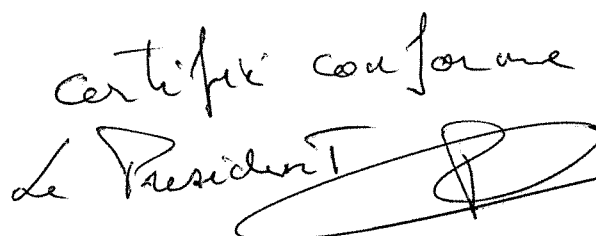 certifié conforme
Le President